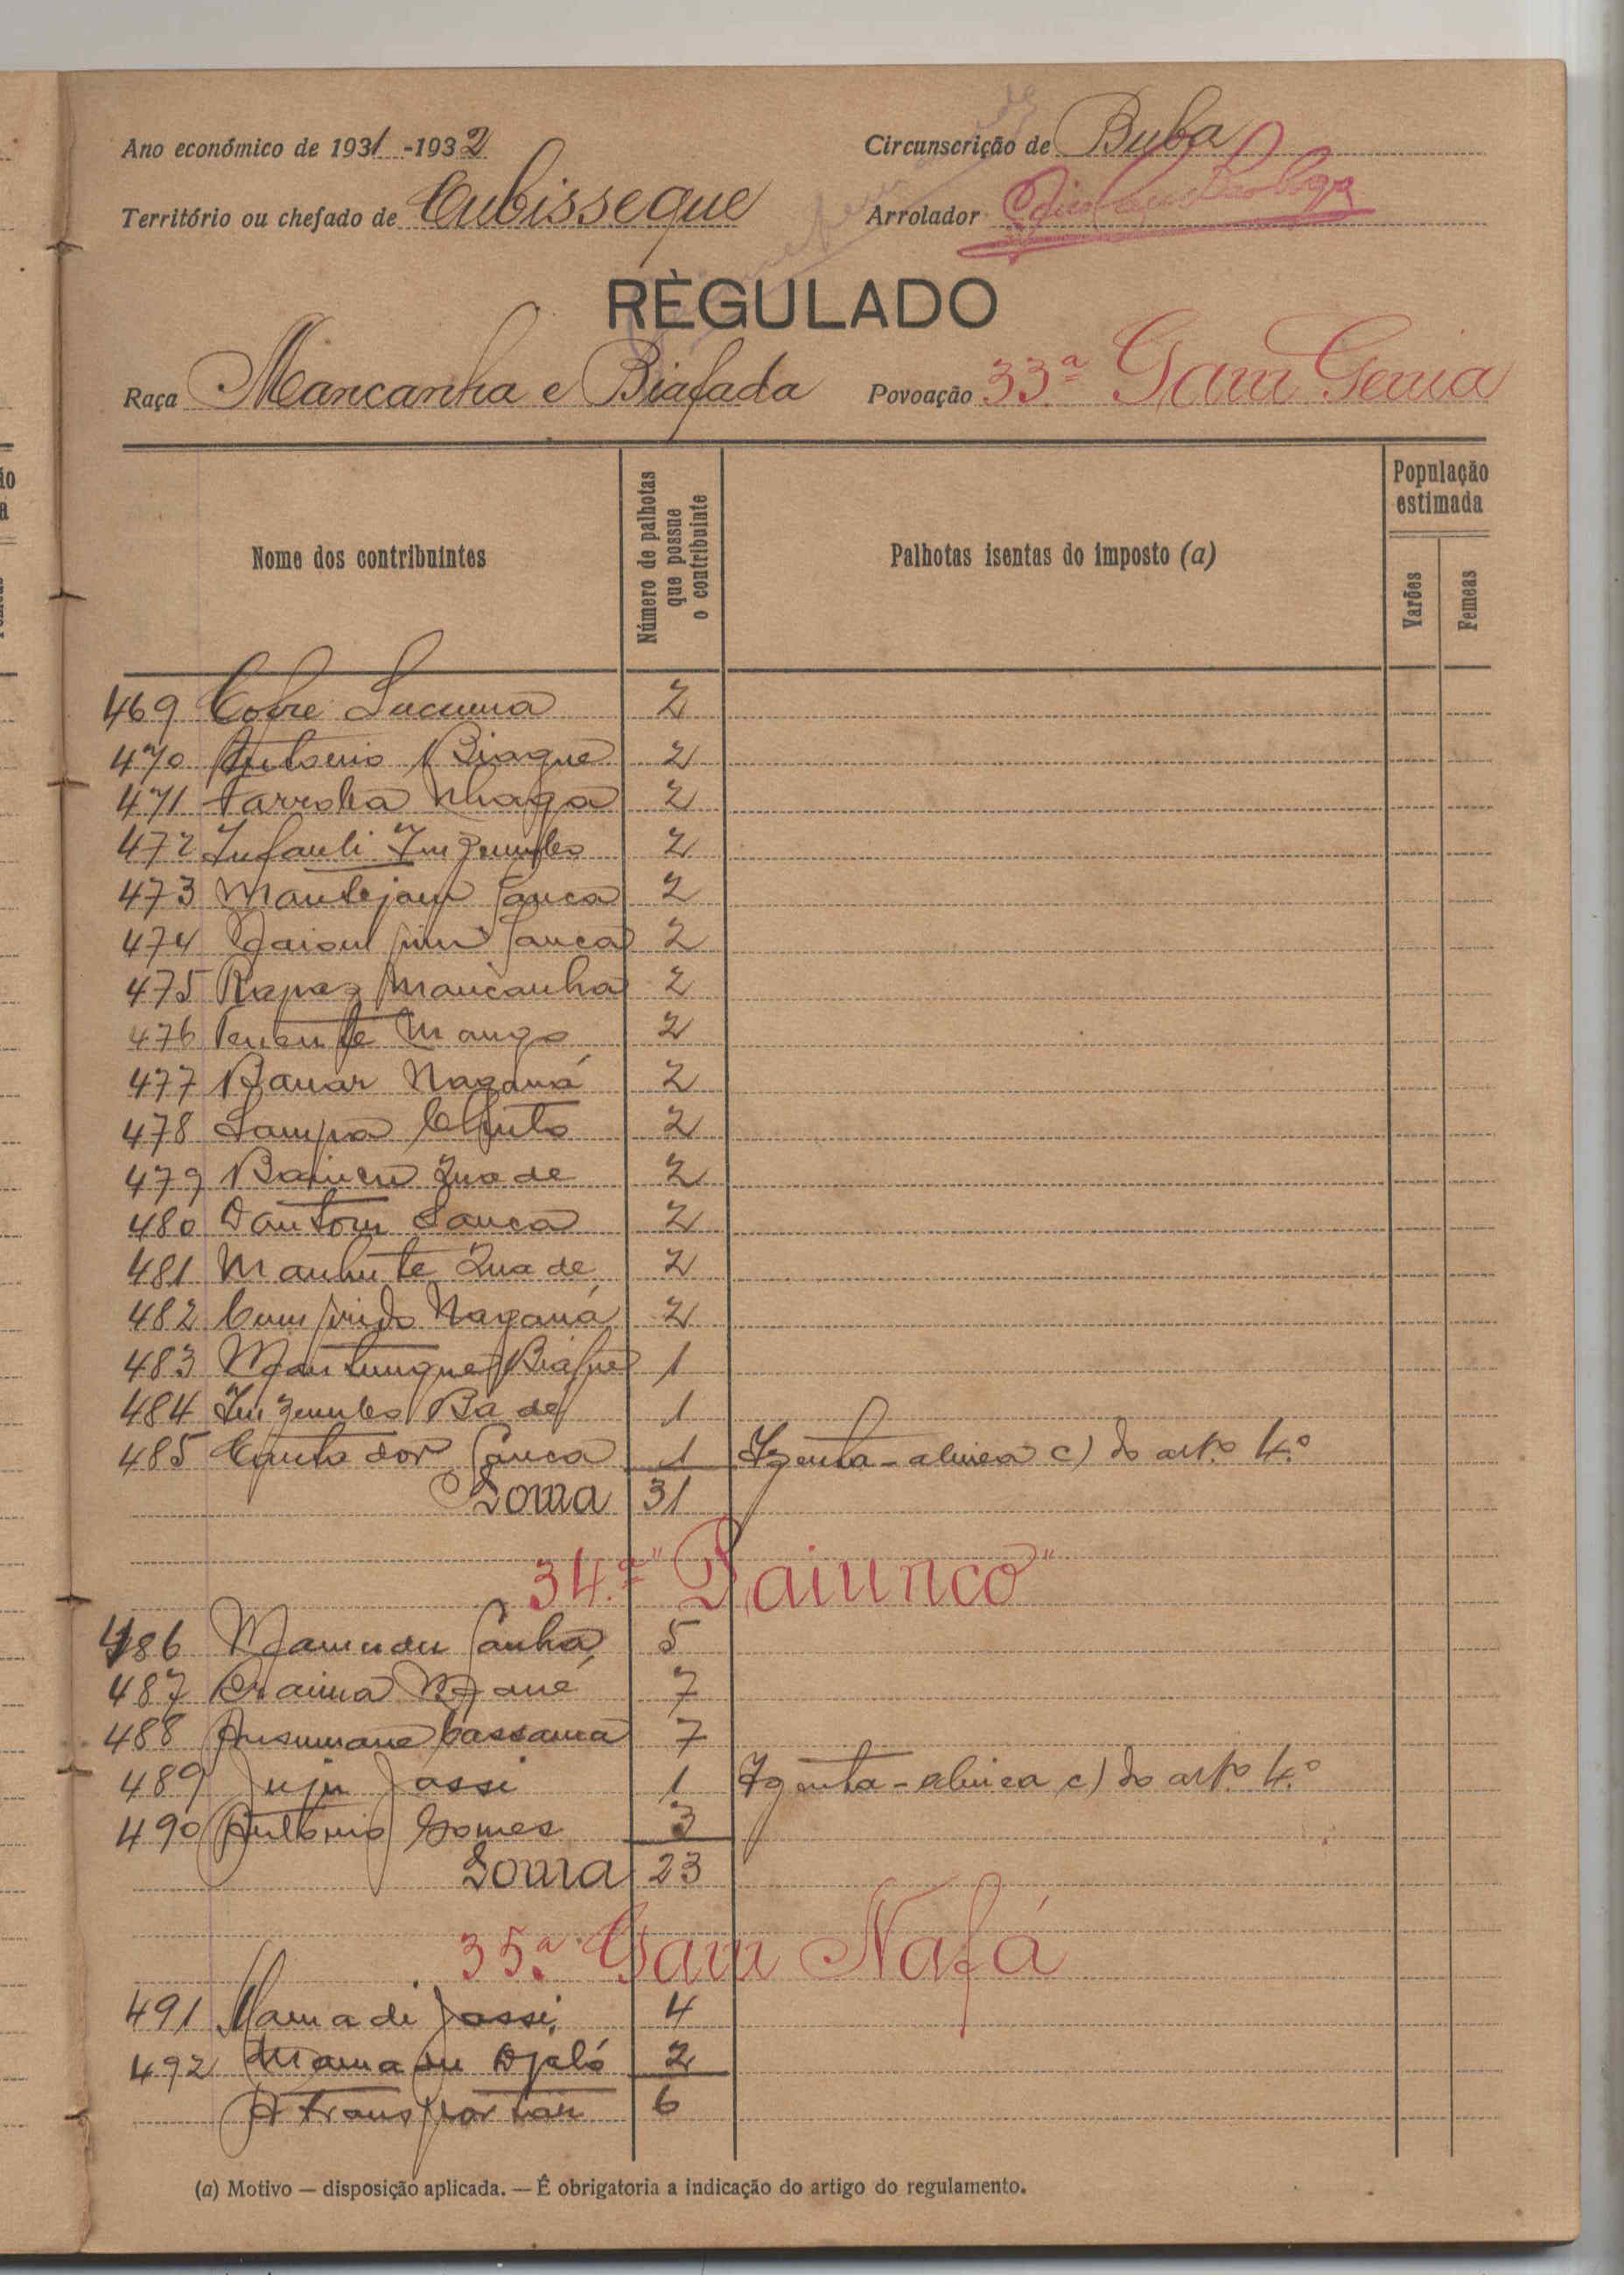 Ano económico de 1931-1932
Circunscrição de Buba
Território ou chefado de Cubisseque
Arrolador
RÈGULADO
Raça Mancanha e Biafada
Povoação 33.ª Gam Genia
Nome dos contribuintes
Número de palhotas que possue o contribuinte
Palhotas isentas do imposto (a)
População estimada
Varões
Femeas
469 Cobre Lucuma 2
470 Antonio Biague 2
471 Tarroba Nhaga 2
472 2
473 Mantejam Sanca 2
474 Sanca 2
475 Rapaz Mancanha 2
476 Penente Mango 2
477 Banar Naganá 2
478 Sampa 2
479 Quade 2
480 Dantom Sanca 2
481 Manhute Quade 2
482 Cumprido Naganá 2
483 Mantungue Biague 1
484 Inzembo Bade 1
485 Contador Sanca 1 Izenta - alinea c) do art.º 4.º
Soma 31
34.ª "Paiunco"
486 Mamudu Sanhá 5
487 Braima Mané 7
488 Ansumane Cassamá 7
489 Juju Jassi 1 Izenta - alinea c) do art.º 4.º
490 António Gomes 3
Soma 23
35.ª Gam Nafá
491 Mamadi Jassi 4
492 Mamadu Djaló 2
A transportar 6
(a) Motivo — disposição aplicada. — É obrigatoria a indicação do artigo do regulamento.